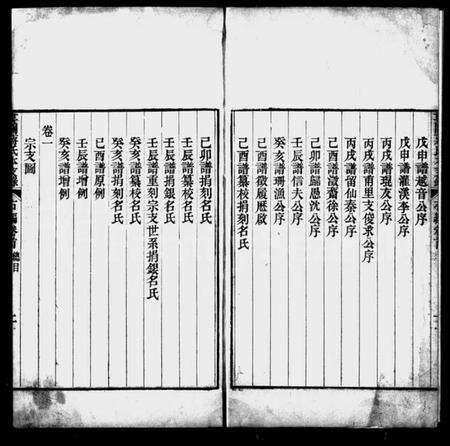 戊申譜邁奇公序
戊申譜羅漢李公序
丙戌譜琨友公序
丙戌譜甫里支俊求公序
丙戌譜留仙秦公序
己酉譜澂齋徐公序
己卯譜歸愚沈公序
壬辰譜信夫公序
癸亥譜珊漁公序
己酉譜徵履歷啟
己酉譜纂校捐刻名氏
己卯譜捐刻名氏
壬辰譜纂校名氏
壬辰譜捐銀名氏
壬辰譜重刻宗支世系捐銀名氏
癸亥譜纂校名氏
癸亥譜捐刻名氏
己酉譜原例
壬辰譜增例
癸亥譜增例
卷一
宗支圖
卷首 總目